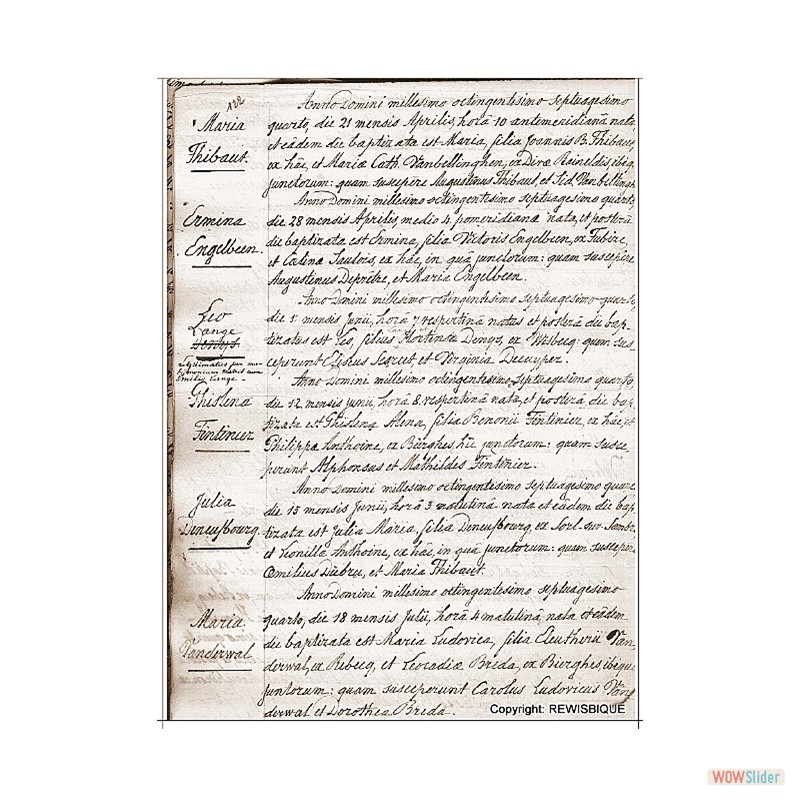 122
Maria
Thibaut.
Anno Domini millesimo octingentesimo septuagesimo
quarto, die 21 mensis Aprilis, horâ 10 antemeridianâ nata,
et eâdem die baptizata est Maria, filia Joannis B. Thibaut,
ex hâc, et Mariæ Cath. Vanbellinghen, ex Divæ Raineldis, ibiq.
junctorum: quam suscepere Augustinus Thibaut, et Vanbellingh
Ermina
Engelbeen.
Anno Domini millesimo octingentesimo septuagesimo quarto
die 28 mensis Aprilis, mediâ 4 pomeridianâ nata, et posterâ
die baptizata est Ermina, filia Victoris Engelbeen, ex Tubize,
et Cœlinæ Sautois, ex hâc, in quâ junctorum: quam suscepere
Augustinus Deprêtre, et Maria Engelbeen.
Leo
Lange
legitimatus per ma-
trimonium matris cum
Lange
Anno Domini millesimo octingentesimo septuagesimo quarto,
die 1â mensis Junii, horâ 7 vespertinâ natus et posterâ die bap-
tizatus est Leo, filius Hortensæ Denys, ex Wisbecq: quem sus
ceperunt Eliseus et Virginia Decuyper.
Ghislena
Fintinier
Anno Domini millesimo octingentesimo septuagesimo quarto,
die 12 mensis Junii, horâ 8 vespertinâ nata, et posterâ die bap
tizata est Ghislena Alena, filia Benonii Fintinier, ex hâc, et
Philippæ Anthoine, ex Bierghes hîc junctorum: quam susce
perunt Alphonsus et Mathildes Fintinier.
Julia
Deneufbourg.
Anno Domini millesimo octingentesimo septuagesimo quarto
die 15 mensis Junii, horâ 3 matutinâ nata et eâdem die bap
tizata est Julia Maria, filia Deneufbourg, ex Sorl. sur Sambre
et Vonillæ Anthoine, ex hâc, in quâ junctorum: quam suscepere
Œmilius Dubru, et Maria Thibaut.
Maria
Vanderwal
Anno Domini millesimo octingentesimo septuagesimo
quarto, die 18 mensis Julii, horâ 4 matutinâ nata et eâdem
die baptizata est Maria Ludovica, filia Eleutherii Van
derwal, ex Rebecq, et Leocadiæ Breda, ex Bierghes, ibique
juntorum: quam susceperunt Carolus Ludovicus Van
derwal et Dorothea Breda.
Copyright: REWISBIQUE
WOWSlider